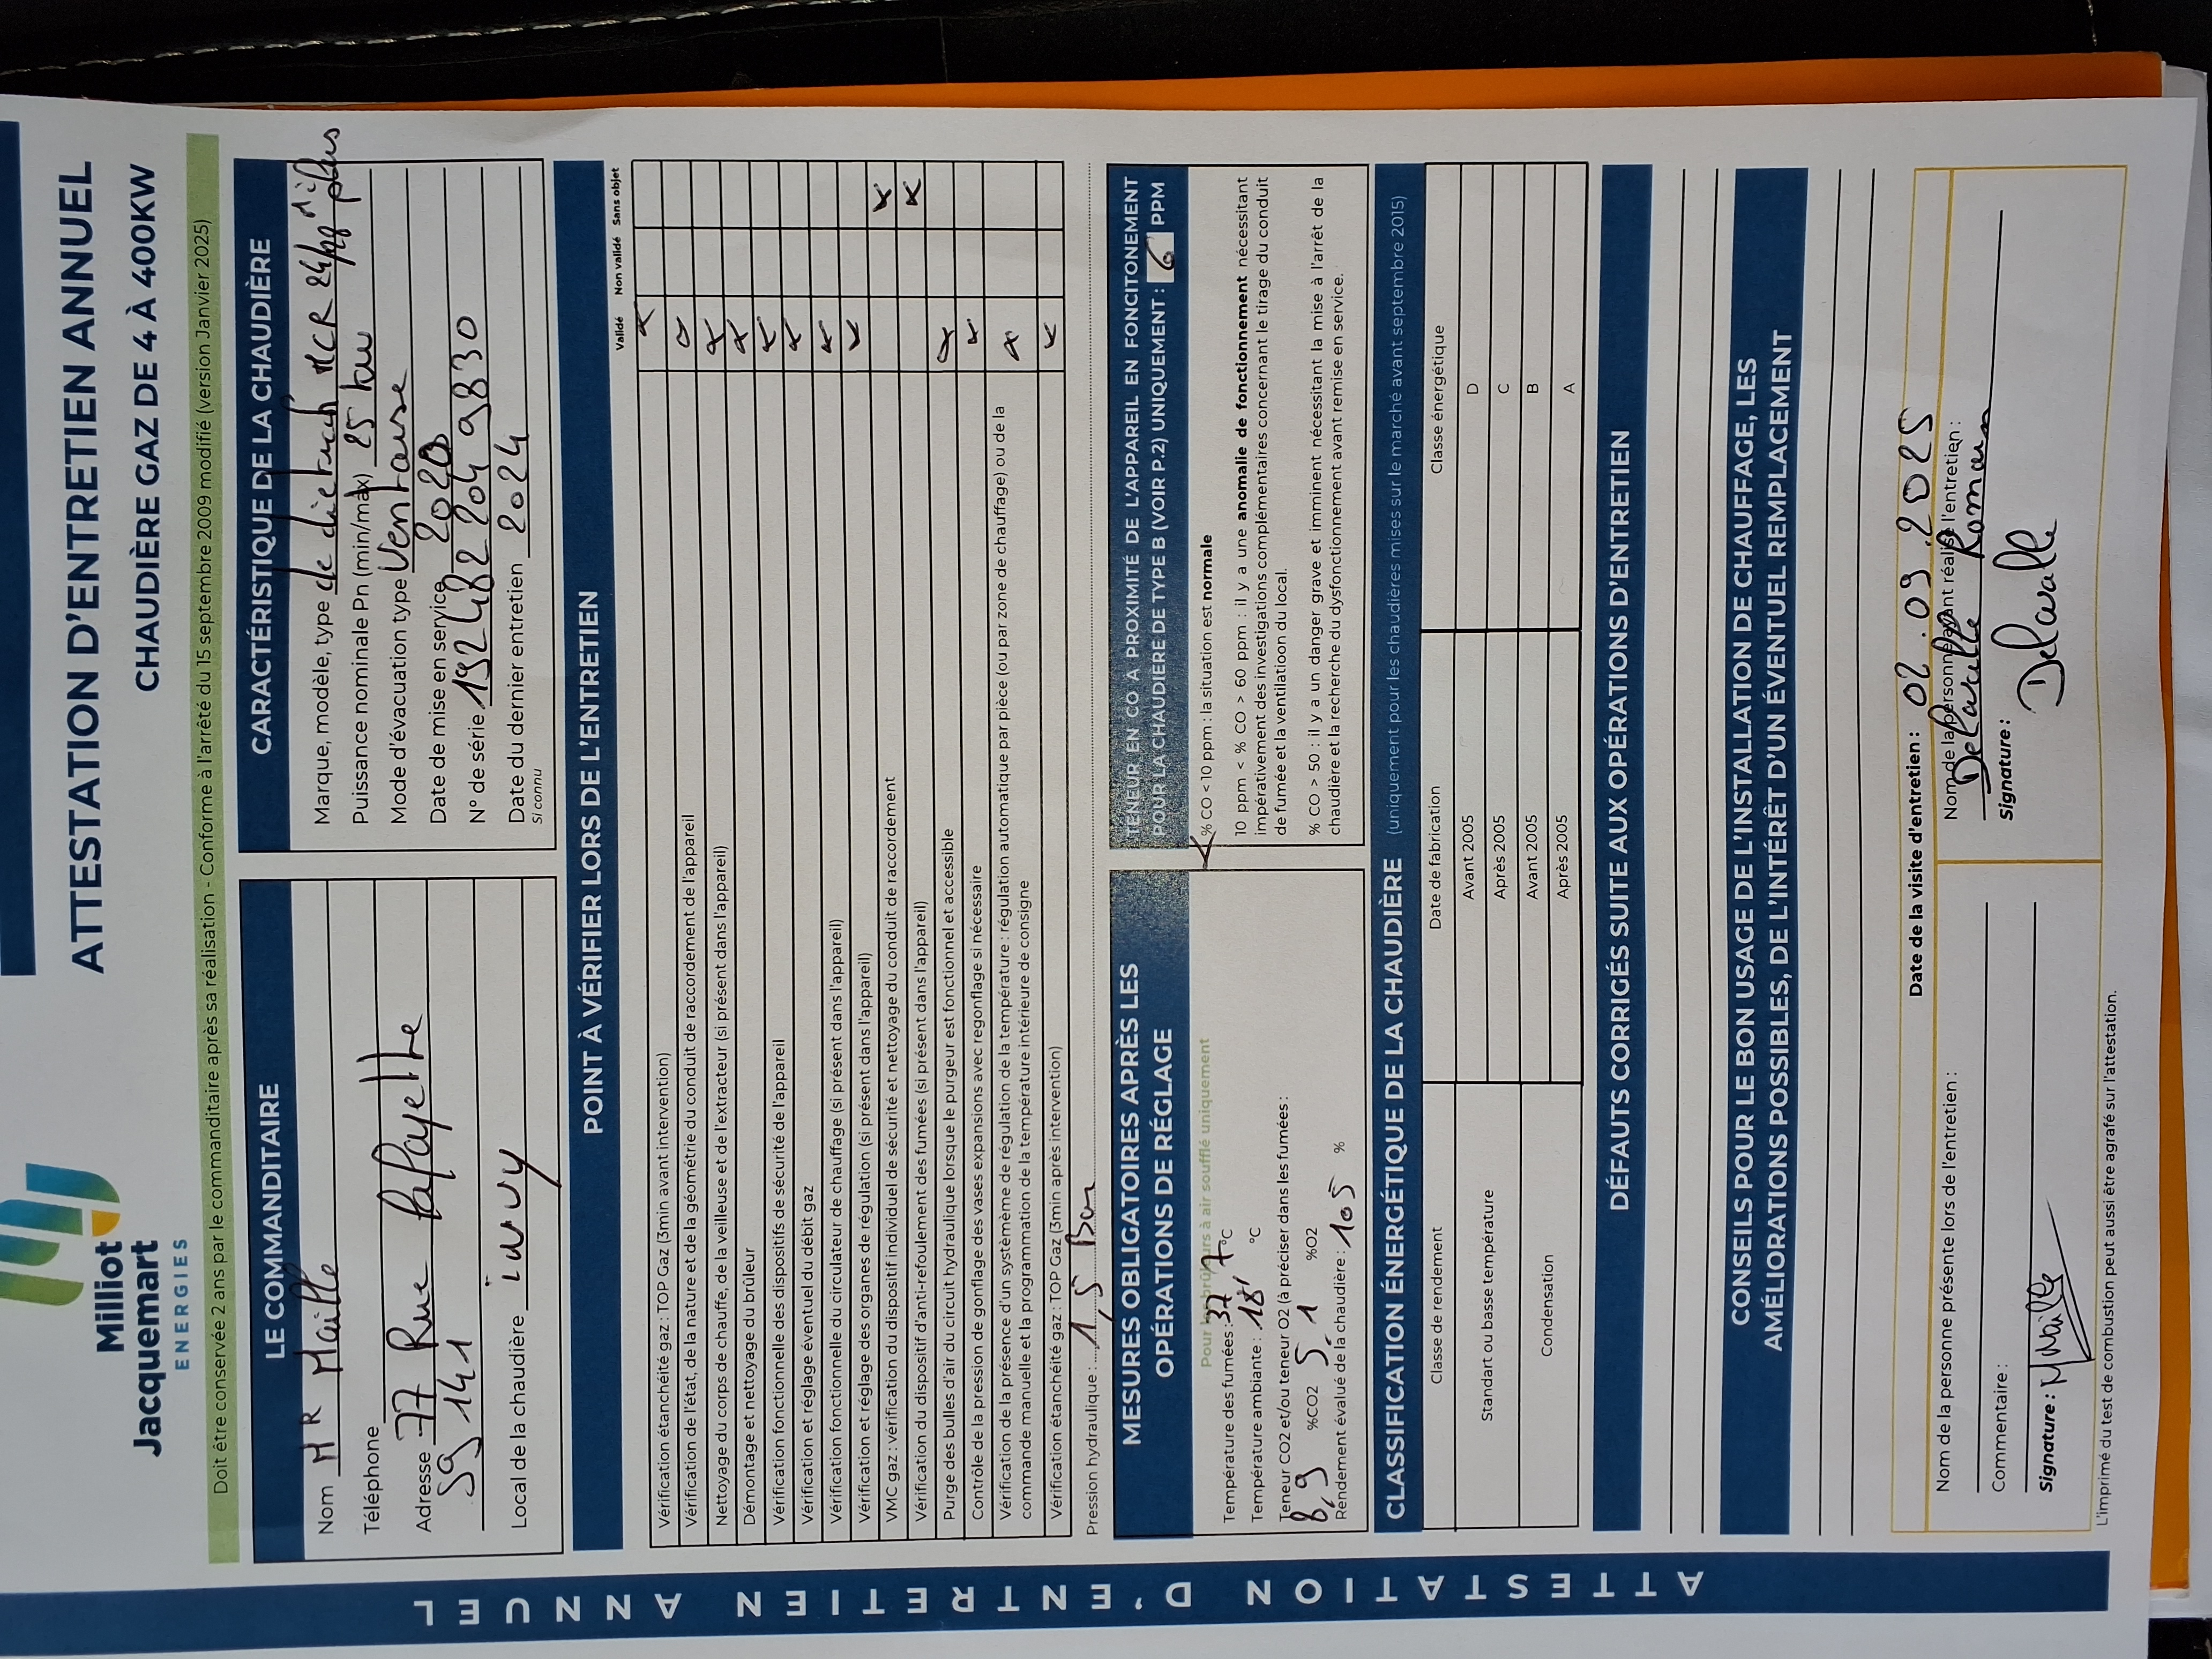 Milliot
Jacquemart
ENERGIES
ATTESTATION D'ENTRETIEN ANNUEL
CHAUDIÈRE GAZ DE 4 À 400KW
Doit être conservée 2 ans par le commanditaire après sa réalisation - Conforme à l'arrêté du 15 septembre 2009 modifié (version Janvier 2025)
LE COMMANDITAIRE
Nom MR Maille
Téléphone
Adresse 77 Rue Lafayette
59 141
Local de la chaudière iwuy
CARACTÉRISTIQUE DE LA CHAUDIÈRE
Marque, modèle, type de dietrich MCR 24 plus
Puissance nominale Pn (min/max) 25 kw
Mode d'évacuation type Ventouse
Date de mise en service 2020
N° de série 192482 204 9830
Date du dernier entretien 2024
Si connu
POINT À VÉRIFIER LORS DE L'ENTRETIEN
Validé Non validé Sans objet
Vérification étanchéité gaz : TOP Gaz (3min avant intervention) x
Vérification de l'état, de la nature et de la géométrie du conduit de raccordement de l'appareil x
Nettoyage du corps de chauffe, de la veilleuse et de l'extracteur (si présent dans l'appareil) x
Démontage et nettoyage du brûleur x
Vérification fonctionnelle des dispositifs de sécurité de l'appareil x
Vérification et réglage éventuel du débit gaz x
Vérification fonctionnelle du circulateur de chauffage (si présent dans l'appareil) x
Vérification et réglage des organes de régulation (si présent dans l'appareil) x
VMC gaz : vérification du dispositif individuel de sécurité et nettoyage du conduit de raccordement x
Vérification du dispositif d'anti-refoulement des fumées (si présent dans l'appareil) x
Purge des bulles d'air du circuit hydraulique lorsque le purgeur est fonctionnel et accessible x
Contrôle de la pression de gonflage des vases expansions avec regonflage si nécessaire x
Vérification de la présence d'un systèmème de régulation de la température : régulation automatique par pièce (ou par zone de chauffage) ou de la
commande manuelle et la programmation de la température intérieure de consigne x
Vérification étanchéité gaz : TOP Gaz (3min après intervention) x
Pression hydraulique : 1,5 Bar
MESURES OBLIGATOIRES APRÈS LES
OPÉRATIONS DE RÉGLAGE
Pour les brûleurs à air soufflé uniquement
Température des fumées : 37,7 °C
Température ambiante : 18, °C
Teneur CO2 et/ou teneur O2 (à préciser dans les fumées :
8,9 %CO2 5,1 %O2
Rendement évalué de la chaudière : 105 %
TENEUR EN CO A PROXIMITÉ DE L'APPAREIL EN FONCITONEMENT
POUR LA CHAUDIERE DE TYPE B (VOIR P.2) UNIQUEMENT : 6 PPM
x % CO < 10 ppm : la situation est normale
10 ppm < % CO > 60 ppm : il y a une anomalie de fonctionnement nécessitant
impérativement des investigations complémentaires concernant le tirage du conduit
de fumée et la ventilatioon du local.
% CO > 50 : il y a un danger grave et imminent nécessitant la mise à l'arrêt de la
chaudière et la recherche du dysfonctionnement avant remise en service.
CLASSIFICATION ÉNERGÉTIQUE DE LA CHAUDIÈRE (uniquement pour les chaudières mises sur le marché avant septembre 2015)
Classe de rendement Date de fabrication Classe énergétique
Standart ou basse température Avant 2005 D
Après 2005 C
Condensation Avant 2005 B
Après 2005 A
DÉFAUTS CORRIGÉS SUITE AUX OPÉRATIONS D'ENTRETIEN
CONSEILS POUR LE BON USAGE DE L'INSTALLATION DE CHAUFFAGE, LES
AMÉLIORATIONS POSSIBLES, DE L'INTÉRÊT D'UN ÉVENTUEL REMPLACEMENT
Date de la visite d'entretien : 02.09.2025
Nom de la personne présente lors de l'entretien :
Commentaire :
Signature : Maille
Nom de la personne ayant réalisé l'entretien :
Delavalle Romain
Signature :
Delavalle
L'imprimé du test de combustion peut aussi être agrafé sur l'attestation.
ATTESTATION D'ENTRETIEN ANNUEL